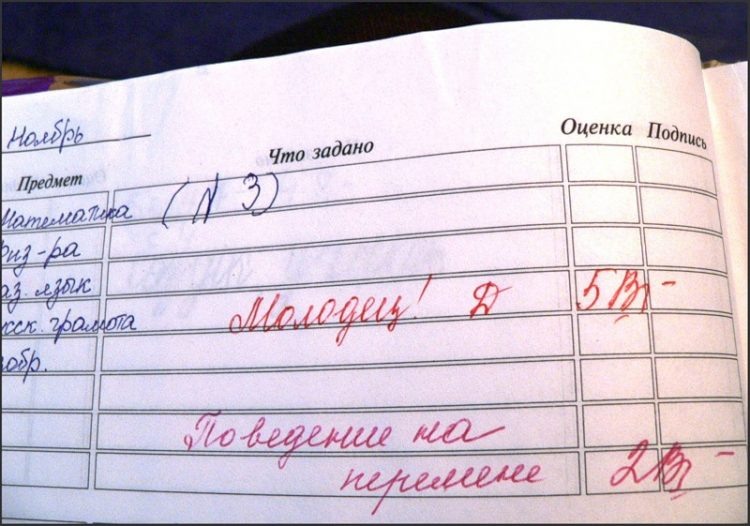 Ноябрь
Что задано Оценка Подпись
Предмет
Математика (N 3)
Физ-ра
Каз. язык
Русск. грамота Молодец! Д 5
Изобр.
Поведение на
перемене 2